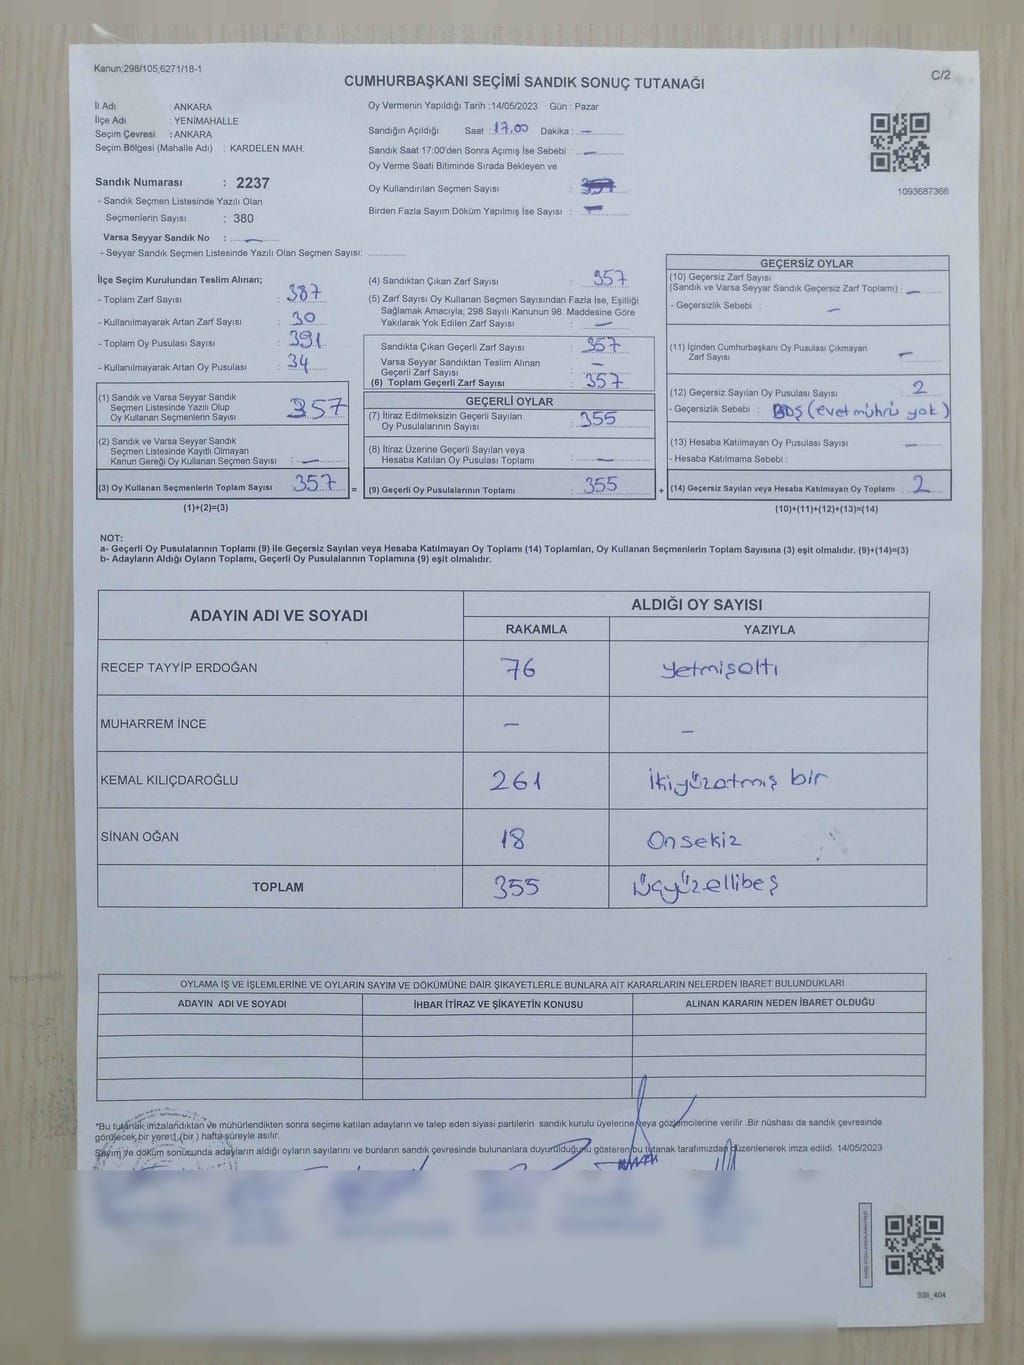 Kanun;298/105;6271/18-1
C/2
CUMHURBAŞKANI SEÇİMİ SANDIK SONUÇ TUTANAĞI
İl Adı : ANKARA
İlçe Adı : YENİMAHALLE
Seçim Çevresi : ANKARA
Seçim Bölgesi (Mahalle Adı) : KARDELEN MAH.
Sandık Numarası : 2237
- Sandık Seçmen Listesinde Yazılı Olan
Seçmenlerin Sayısı : 380
Varsa Seyyar Sandık No : —
- Seyyar Sandık Seçmen Listesinde Yazılı Olan Seçmen Sayısı:
Oy Vermenin Yapıldığı Tarih :14/05/2023 Gün : Pazar
Sandığın Açıldığı Saat : 17.00 Dakika : —
Sandık Saat 17:00'den Sonra Açımış İse Sebebi : —
Oy Verme Saati Bitiminde Sırada Bekleyen ve
Oy Kullandırılan Seçmen Sayısı :
Birden Fazla Sayım Döküm Yapılmış İse Sayısı : —
1093687366
İlçe Seçim Kurulundan Teslim Alınan;
- Toplam Zarf Sayısı : 387
- Kullanılmayarak Artan Zarf Sayısı : 30
- Toplam Oy Pusulası Sayısı : 391
- Kullanılmayarak Artan Oy Pusulası : 34
(1) Sandık ve Varsa Seyyar Sandık
Seçmen Listesinde Yazılı Olup
Oy Kullanan Seçmenlerin Sayısı 357
(2) Sandık ve Varsa Seyyar Sandık
Seçmen Listesinde Kayıtlı Olmayan
Kanun Gereği Oy Kullanan Seçmen Sayısı : —
(3) Oy Kullanan Seçmenlerin Toplam Sayısı : 357 =
(1)+(2)=(3)
(4) Sandıktan Çıkan Zarf Sayısı : 357
(5) Zarf Sayısı Oy Kullanan Seçmen Sayısından Fazla İse, Eşitliği
Sağlamak Amacıyla, 298 Sayılı Kanunun 98. Maddesine Göre
Yakılarak Yok Edilen Zarf Sayısı : —
Sandıkta Çıkan Geçerli Zarf Sayısı : 357
Varsa Seyyar Sandıktan Teslim Alınan
Geçerli Zarf Sayısı : —
(6) Toplam Geçerli Zarf Sayısı : 357
GEÇERLİ OYLAR
(7) İtiraz Edilmeksizin Geçerli Sayılan
Oy Pusulalarının Sayısı : 355
(8) İtiraz Üzerine Geçerli Sayılan veya
Hesaba Katılan Oy Pusulası Toplamı : —
(9) Geçerli Oy Pusulalarının Toplamı : 355 +
GEÇERSİZ OYLAR
(10) Geçersiz Zarf Sayısı
(Sandık ve Varsa Seyyar Sandık Geçersiz Zarf Toplamı) : —
- Geçersizlik Sebebi : —
(11) İçinden Cumhurbaşkanı Oy Pusulası Çıkmayan
Zarf Sayısı : —
(12) Geçersiz Sayılan Oy Pusulası Sayısı : 2
- Geçersizlik Sebebi : BOŞ (evet mührü yok)
(13) Hesaba Katılmayan Oy Pusulası Sayısı : —
- Hesaba Katılmama Sebebi :
(14) Geçersiz Sayılan veya Hesaba Katılmayan Oy Toplamı : 2
(10)+(11)+(12)+(13)=(14)
NOT:
a- Geçerli Oy Pusulalarının Toplamı (9) ile Geçersiz Sayılan veya Hesaba Katılmayan Oy Toplamı (14) Toplamları, Oy Kullanan Seçmenlerin Toplam Sayısına (3) eşit olmalıdır. (9)+(14)=(3)
b- Adayların Aldığı Oyların Toplamı, Geçerli Oy Pusulalarının Toplamına (9) eşit olmalıdır.
ADAYIN ADI VE SOYADI
ALDIĞI OY SAYISI
RAKAMLA YAZIYLA
RECEP TAYYİP ERDOĞAN 76 yetmişaltı
MUHARREM İNCE — —
KEMAL KILIÇDAROĞLU 261 ikiyüzatmış bir
SİNAN OĞAN 18 Onsekiz
TOPLAM 355 üçyüzellibeş
OYLAMA İŞ VE İŞLEMLERİNE VE OYLARIN SAYIM VE DÖKÜMÜNE DAİR ŞİKAYETLERLE BUNLARA AİT KARARLARIN NELERDEN İBARET BULUNDUKLARI
ADAYIN ADI VE SOYADI İHBAR İTİRAZ VE ŞİKAYETİN KONUSU ALINAN KARARIN NEDEN İBARET OLDUĞU
*Bu tutanak imzalandıktan ve mühürlendikten sonra seçime katılan adayların ve talep eden siyasi partilerin sandık kurulu üyelerine veya gözlemcilerine verilir .Bir nüshası da sandık çevresinde
görülecek bir yere 1 (bir ) hafta süreyle asılır.
Sayım ve döküm sonucunda adayların aldığı oyların sayılarını ve bunların sandık çevresinde bulunanlara duyurulduğunu gösteren bu tutanak tarafımızdan düzenlenerek imza edildi. 14/05/2023
SSI_404